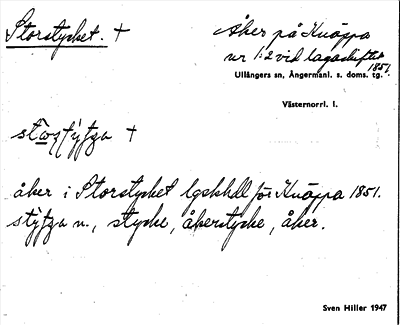 Storstycket. +
Åker på Knäppa
nr 1:2 vid lagaskiftet
1851.
Ullångers sn, Ångermanl. s. doms. tg.
Västernorrl. l.
+
åker i Storstycket lgskhdl för Knäppa 1851.
n., stycke, åkerstycke, åker.
Sven Hiller 1947